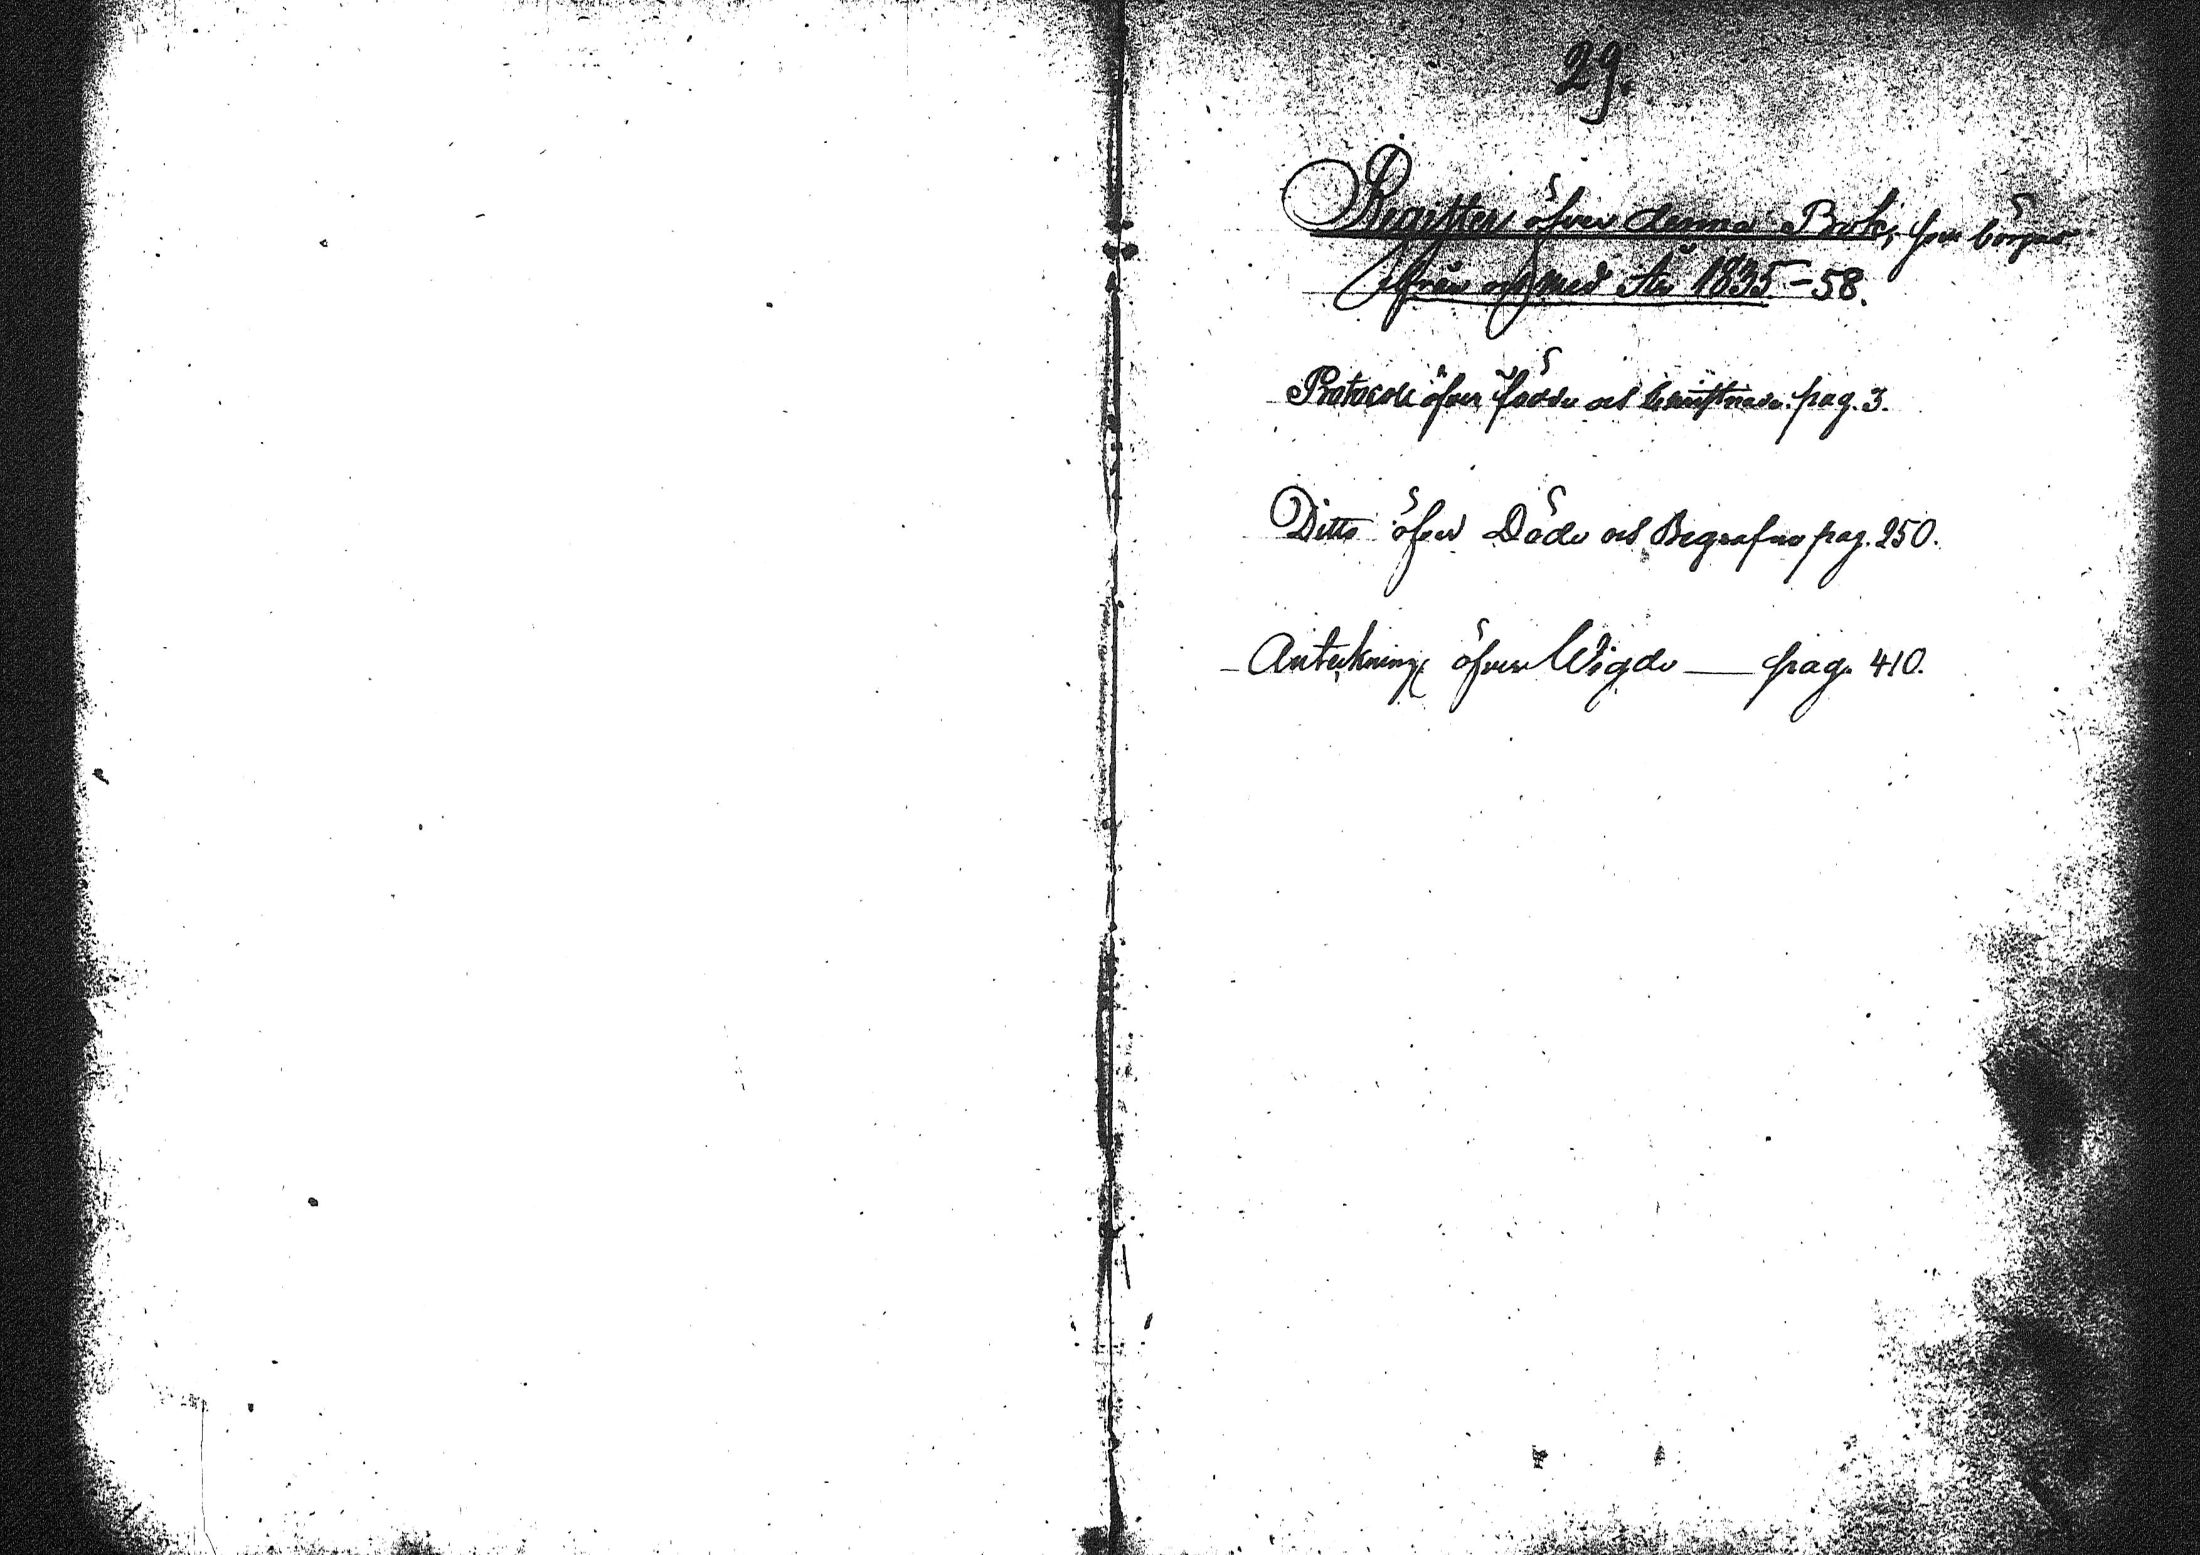 29.
Register öfver denna Bok, som börjar
ifrån och med År 1835-58.
Protocoll öfver födde och christnade. pag. 3.
Ditto öfver Döde och Begrafne pag. 250.
Anteckning öfver Wigde — pag. 410.